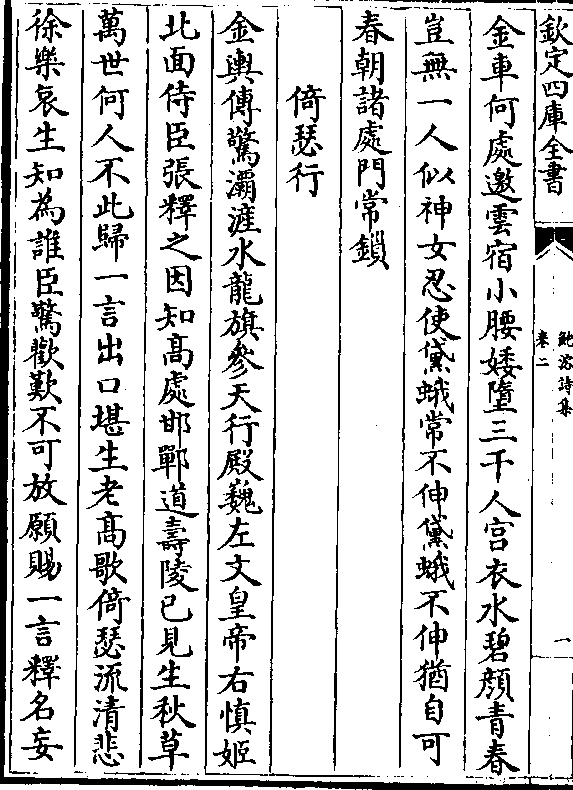 欽定四庫全書
鮑溶詩集
卷二
一
金車何處邀雲宿小腰婑墮三千人宫衣水碧顔青春
豈無一人似神女忍使黛蛾常不伸黛蛾不伸猶自可
春朝諸處門常鎖
倚瑟行
金輿傳驚灞滻水龍旗參天行殿巍左文皇帝右慎姬
北面侍臣張釋之因知髙處邯鄲道壽陵已見生秋草
萬世何人不此歸一言出口堪生老髙歌倚瑟流清悲
徐樂哀生知為誰臣驚歡歎不可放願賜一言釋名妄